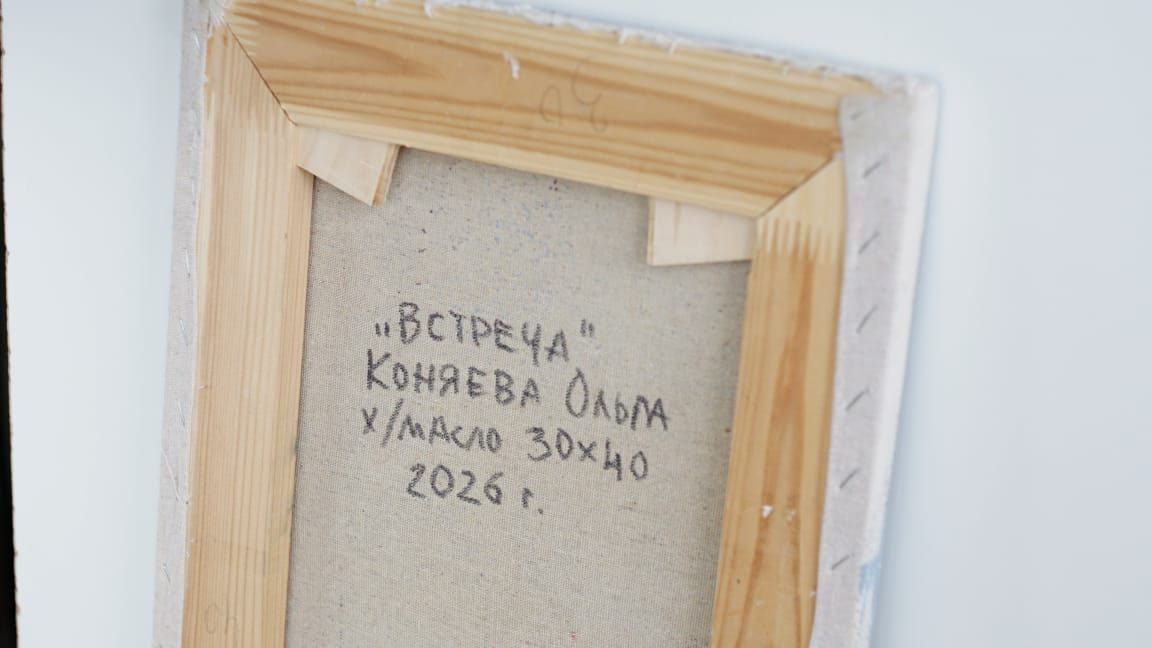 30
"Встреча"
Коняева Ольга
х/масло 30х40
2026 г.
40